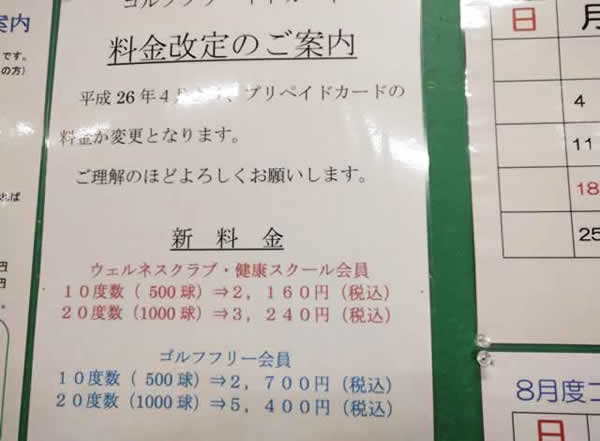 案内
です。
の方)
円
円
料金改定のご案内
平成26年4月より、プリペイドカードの
料金が変更となります。
ご理解のほどよろしくお願いします。
新 料 金
ウェルネスクラブ・健康スクール会員
10度数( 500球)⇒2,160円(税込)
20度数(1000球)⇒3,240円(税込)
ゴルフフリー会員
10度数( 500球)⇒2,700円(税込)
20度数(1000球)⇒5,400円(税込)
日 月
4
11
18
25
8月度コ
日